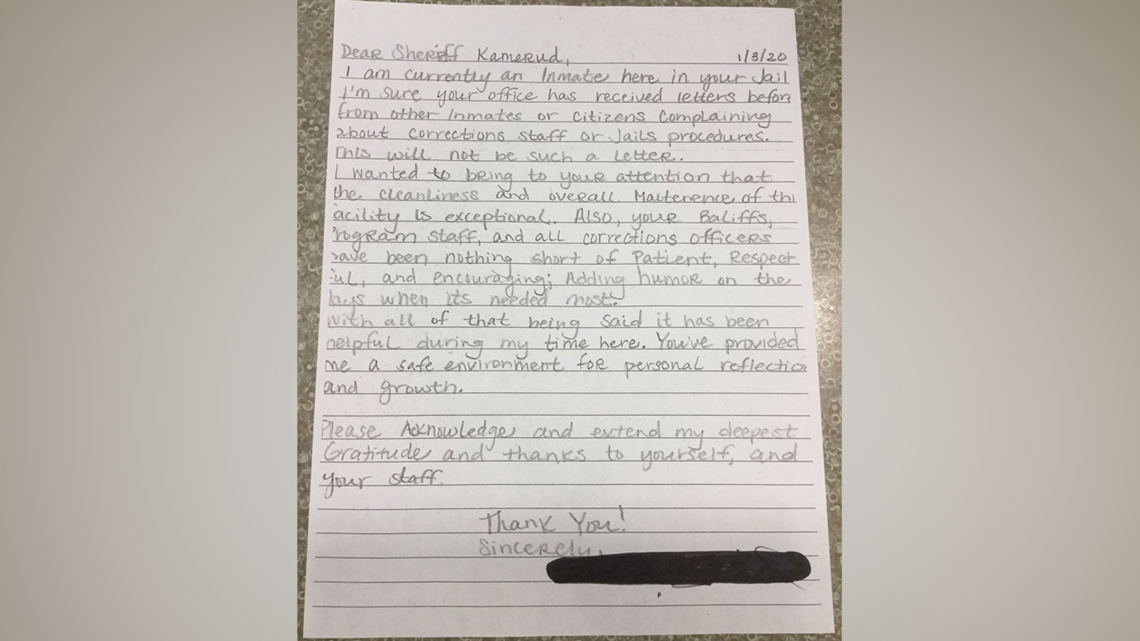 Dear Sheriff Kamerud, 1/3/20
I am currently an Inmate here in your Jail
I'm sure your office has received letters befor
from other Inmates or citizens complaining
about corrections staff or Jails procedures.
This will not be such a letter.
I wanted to bring to your attention that
the cleanliness and overall Maitenence of thi
acility is exceptional. Also, your Baliffs,
rogram staff, and all corrections officers
ave been nothing short of Patient, Respect
ful, and encouraging; Adding humor on the
days when its needed most.
With all of that being said it has been
helpful during my time here. You've provided
me a safe environment for personal reflectio
and growth.
Please Acknowledge and extend my deepest
Gratitude and thanks to yourself, and
your staff.
Thank You!
Sincerely,